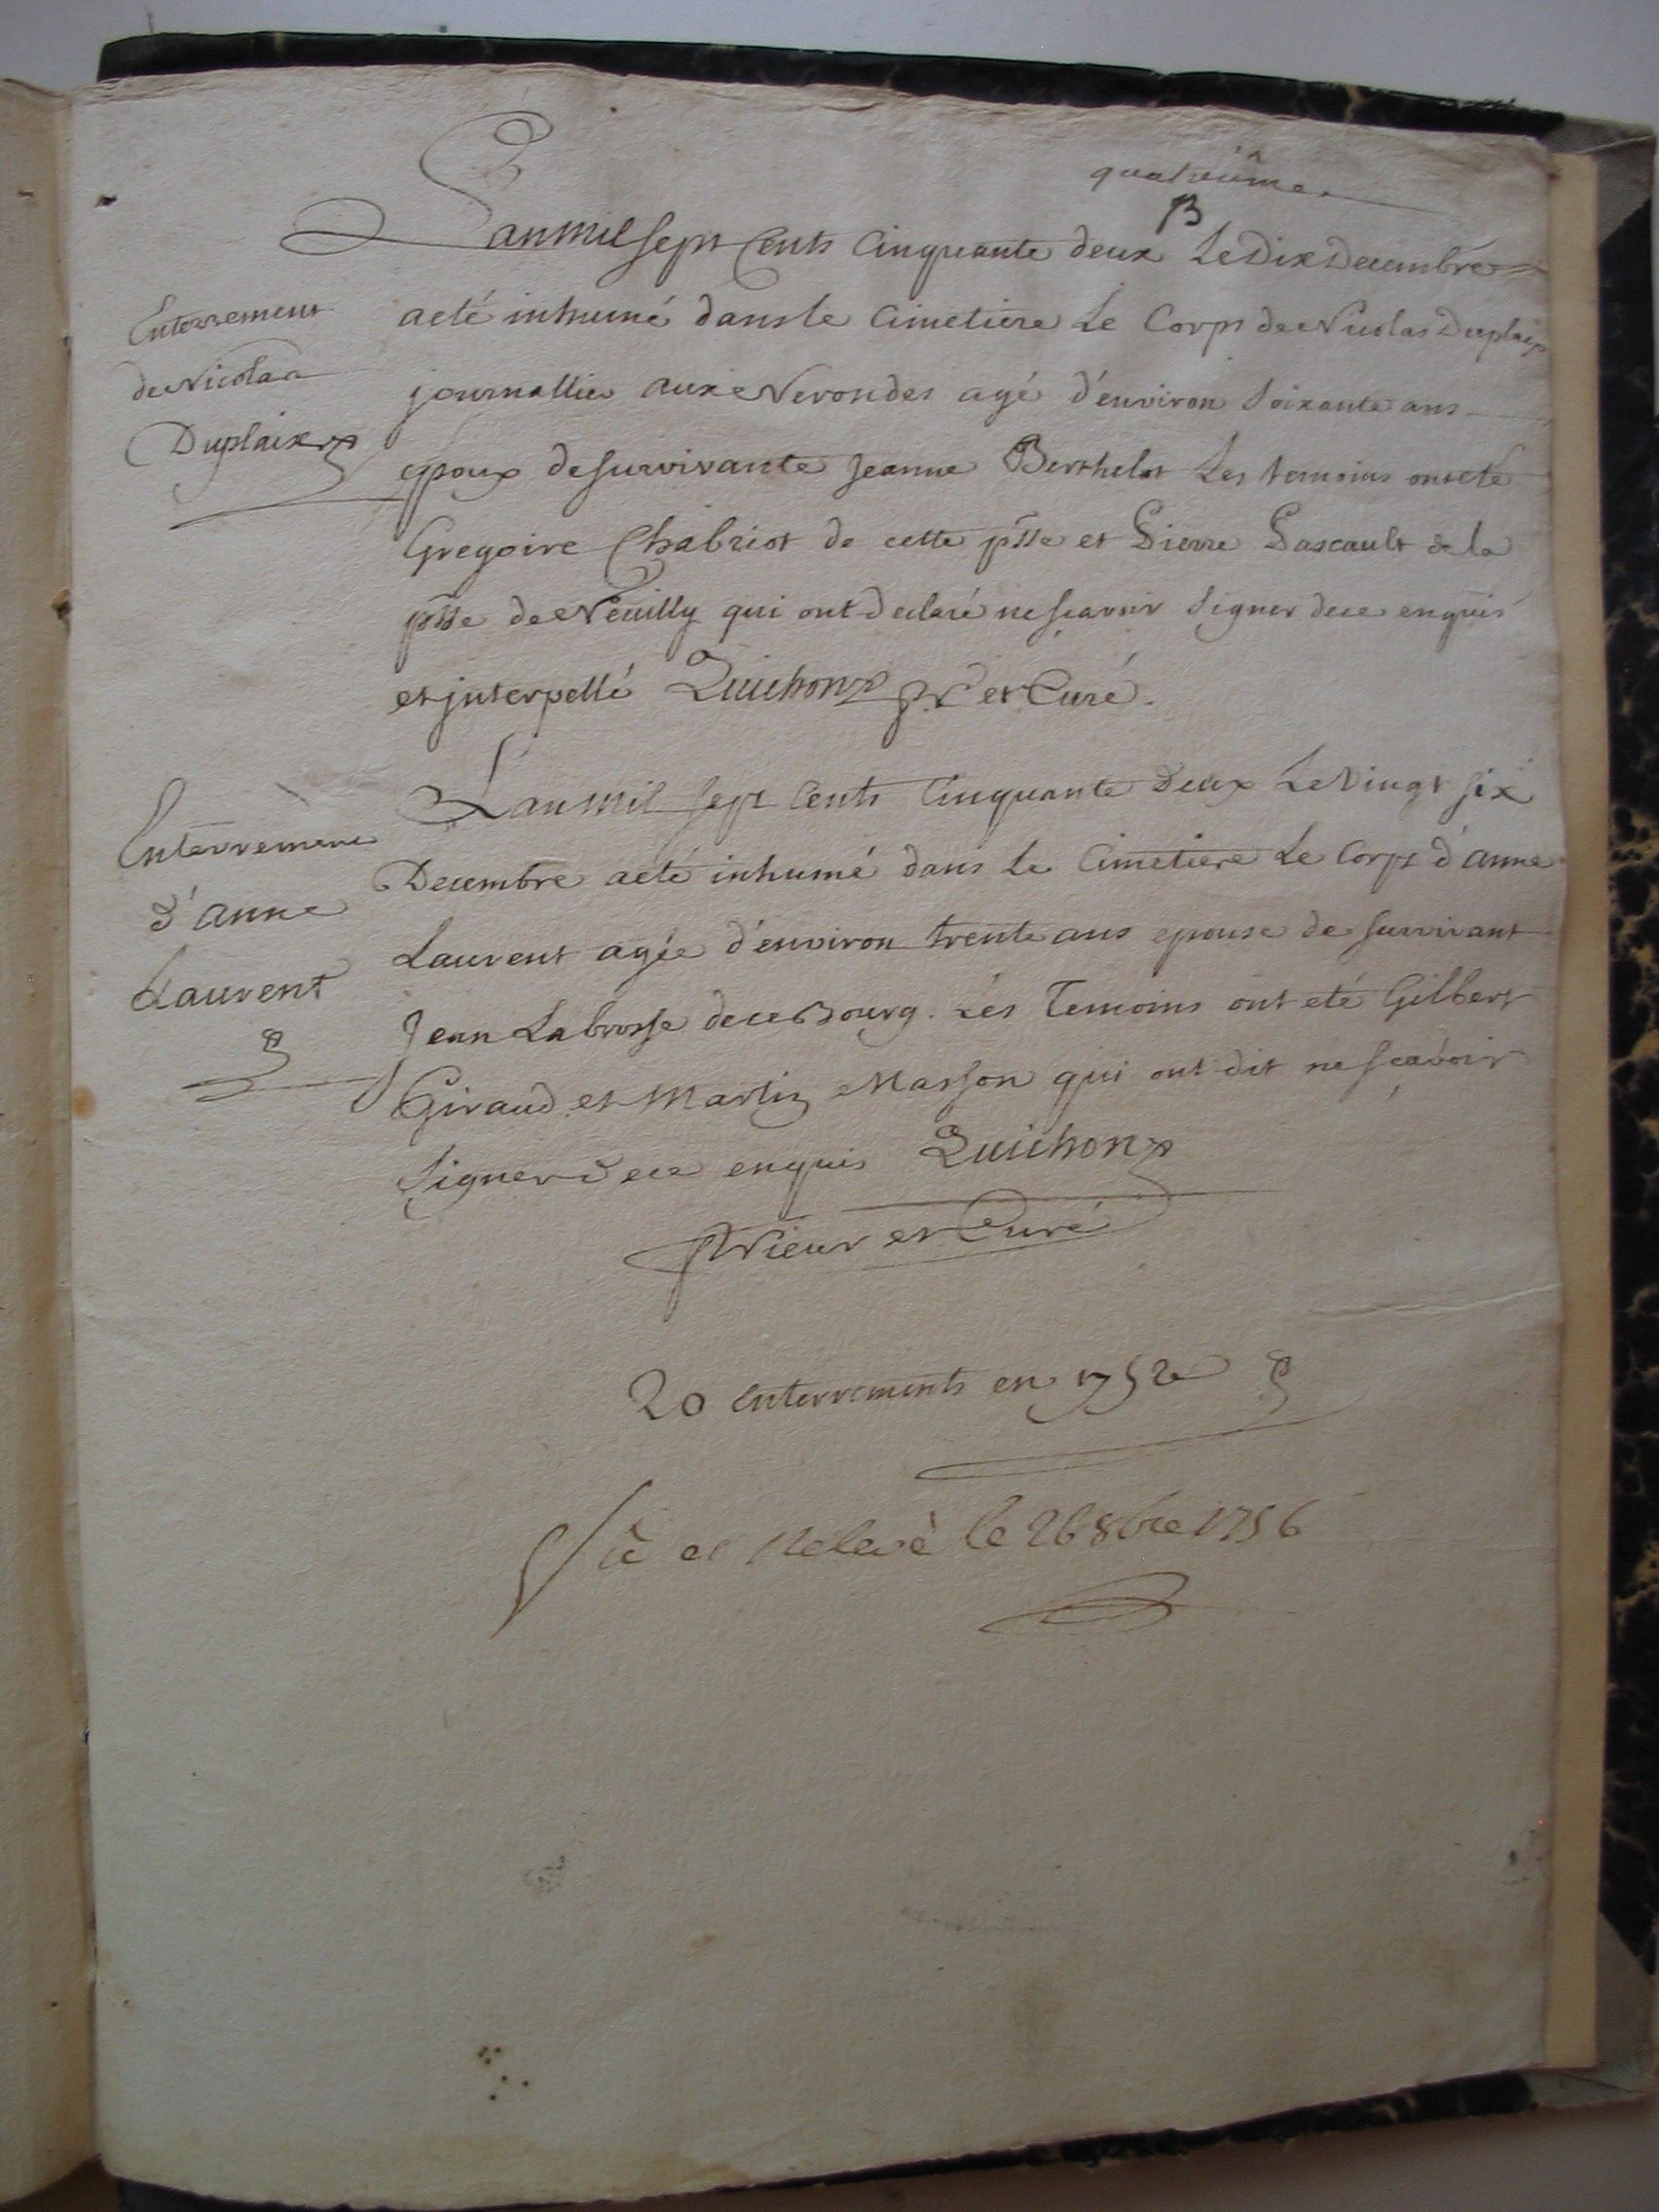 quatrième
L'an mil sept Cents Cinquante deux Le Dix Decembre
Enterrement
de Nicolas
Duplaix
a eté inhumé dans le Cimetiere Le Corps de Nicolas Duplaix
journallier aux Nerondes agé d'environ Soixante ans
epoux de survivante Jeanne Berthelot Les temoins ont eté
Gregoire Chabriot de cette psse et Pierre Pascault de la
psse de Neuilly qui ont declaré ne scavoir signer de ce enquis
et interpellé Quichon pr et Curé.
Enterrement
d'anne
Laurent
L'an mil sept Cents Cinquante Deux Le Vingt six
Decembre a eté inhumé dans Le Cimetiere Le Corps d'anne
Laurent agée d'environ trente ans epouse de survivant
Jean Labrosse de ce Bourg. Les Temoins ont eté Gilbert
Giraud et Martin Masson qui ont dit ne scavoir
signer de ce enquis Quichon
Prieur et Curé
20 enterrements en 1752
Vû et Relevé le 26 8bre 1756